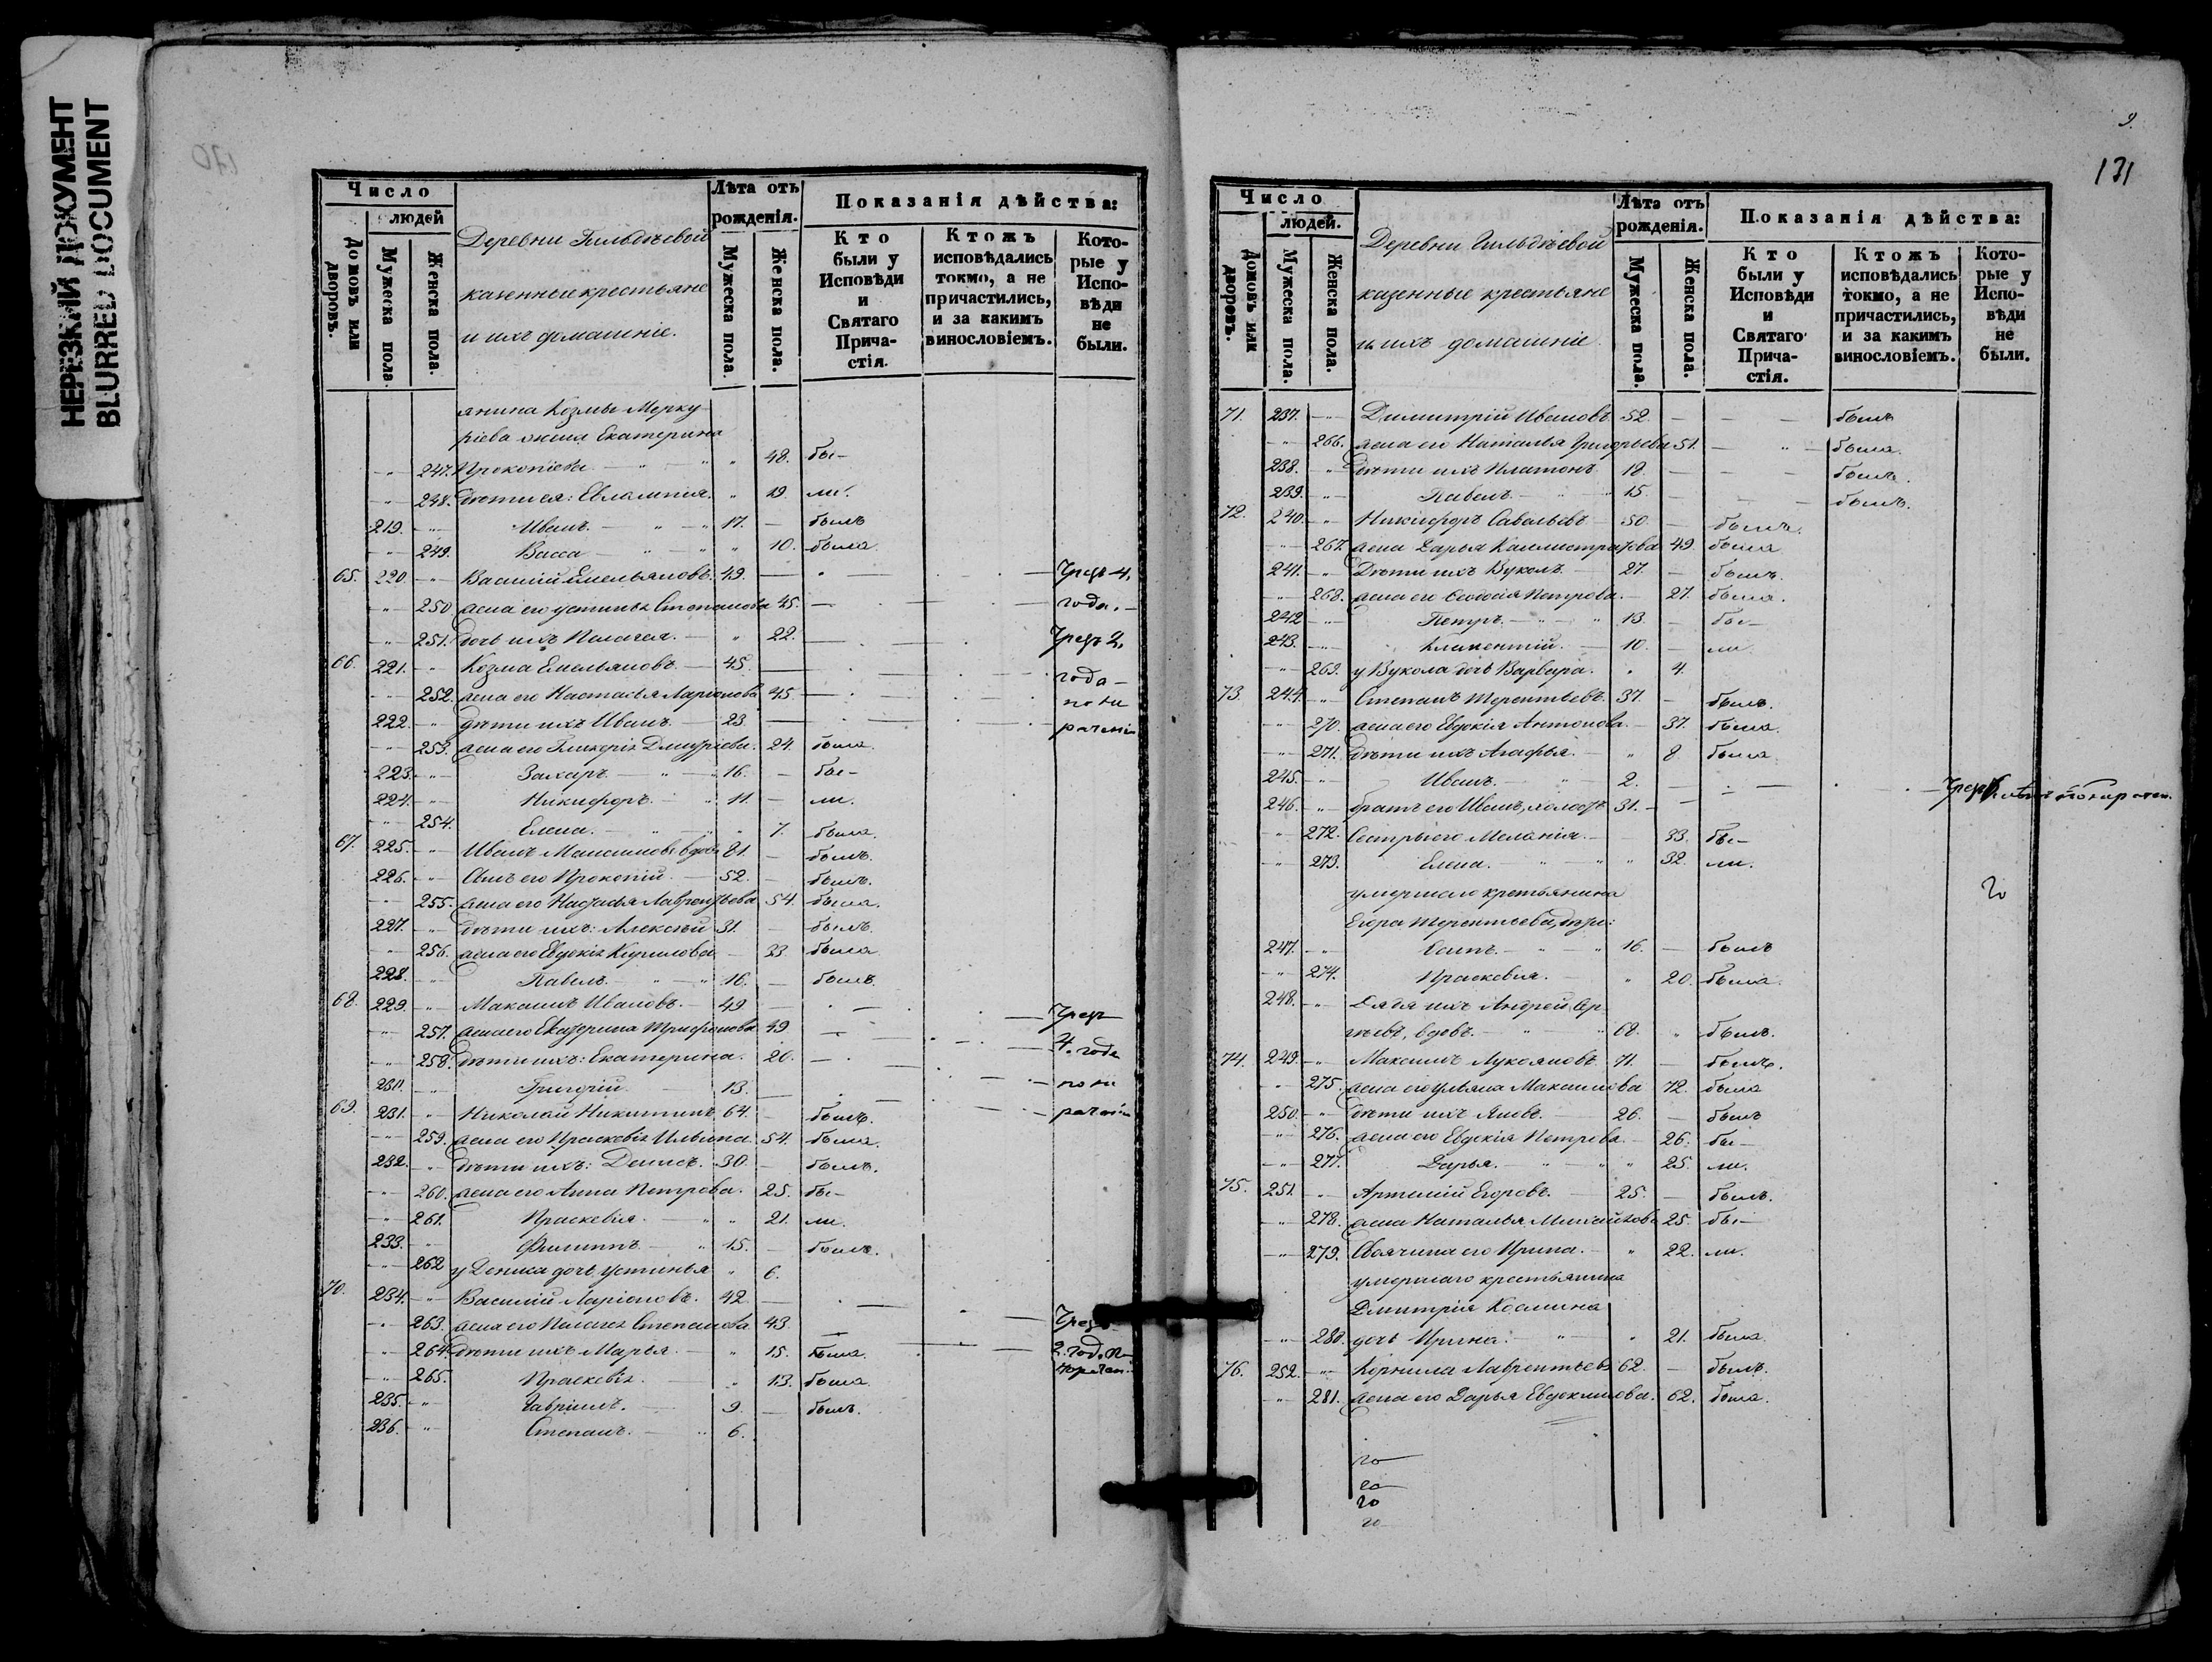 НЕРЕЗКИЙ ДОКУМЕНТ
BLURRED DOCUMENT
170
Число
людей
Домовъ или дворовъ.
Мужеска пола.
Женска пола.
Деревни Гильдѣевой
казенные крестьяне
и ихъ домашніе.
Лѣта отъ рожденія.
Мужеска пола.
Женска пола.
Показанія дѣйства:
Кто были у Исповѣди и Святаго Прича-стія.
Ктожъ исповѣдались токмо, а не причастились, и за какимъ винословіемъ.
Кото-рые у Испо-вѣди не были.
янина Козмы Мерку-
ріева жена Екатерина
" 247. Прокопіева — " — " " 48. бы-
" 248. дѣти ея: Евлампія. " 19. ли.
219. " Иванъ. — " — " 17. — былъ
" 249. Васса — " — " " 10. была.
65. 220. " Василій Емельяновъ. 49. — Чрезъ 4.
" 250 жена его Устинья Степанова 45. — года. —
" 251. дочь ихъ Пелагея. — " 22. — Чрезъ 2.
66. 221. " Козма Емельяновъ. — 45. — года —
" 252. жена его Настасья Ларіонова 45. — по не
222. " дѣти ихъ Иванъ. — 23 — раченію
" 253. жена его Гликерія Дмитріева. 24. была.
223. " Захаръ. — " — " 16. — бы-
224. " Никифоръ. — " 11. — ли.
" 254. Елена. — " — " " 7. была.
67. 225. " Иванъ Максимовъ вдовъ 81. — былъ.
226. " Сынъ его Прокопій. — 52. — былъ.
" 255. жена его Настасья Лаврентьева 54. была.
227. " дѣти ихъ: Алексѣй 31. — былъ.
" 256. жена его Евдокія Кирилова — 33. была
228. " Павелъ. — " — " 16. — былъ.
68. 229. " Максимъ Ивановъ. — 49 — Чрезъ
" 257. жена его Екатерина Трифонова 49 — 4. года
" 258. дѣти ихъ: Екатерина. 20. —
230. " Григорій. — 13. — по не
69. 231. " Николай Никитинъ 64. — былъ. раченію
" 259. жена его Праскевія Ильина 54. была.
232. " дѣти ихъ: Денисъ. 30. — былъ.
" 260. жена его Анна Петрова. 25. бы-
" 261. Праскевія. — " " 21. ли.
233. " Филиппъ. — " 15. — былъ.
" 262 у Дениса дочь Устинья " 6.
70. 234. " Василій Ларіоновъ. 42 —
" 263. жена его Пелагея Степанова 43. — Чрезъ
" 264. дѣти ихъ Марья. — " 15. была. 2. год. по
" 265. Праскевія. — " 13. была. нерачен.
235. " Гавріилъ. — 9. — былъ.
236. " Степанъ. — " 6.
9.
171
Число
людей.
Домовъ или дворовъ.
Мужеска пола.
Женска пола.
Деревни Гильдѣевой
казенные крестьяне
и ихъ домашніе.
Лѣта отъ рожденія.
Мужеска пола.
Женска пола.
Показанія дѣйства:
Кто были у Исповѣди и Святаго Прича-стія.
Ктожъ исповѣдались токмо, а не причастились, и за какимъ винословіемъ.
Кото-рые у Испо-вѣди не были.
71. 237. " Димитрій Ивановъ 52. — былъ
" 266. жена его Наталья Григорьева 51. — " — была.
238. " дѣти ихъ Платонъ 18. — былъ.
239. " Павелъ. — " 15. — былъ.
72. 240. " Никифоръ Савельевъ — 50. — былъ.
" 267. жена Дарья Каллистратова 49. была
241. " Дѣти ихъ Вуколъ. — 27. — былъ.
" 268. жена его Ѳеодосія Петрова. — 27. была.
242 " Петръ. — " — " 13. — бы-
243. " Климентій. — 10. — ли.
" 269. у Вукола дочь Варвара. " 4.
73. 244. " Степанъ Терентьевъ. 37. — былъ.
" 270. жена его Евдокія Антонова. — 37. была.
" 271. дѣти ихъ Агафья. — " 8. была
245. " Иванъ. — " — 2.
246. " братъ его Иванъ, холостъ 31. — Чрезъ
" 272. Сестры его Меланія. — 33. бы-
" 273. Елена. — " — " " 32. ли.
умершаго крестьянина
Егора Терентьева, дѣти:
247. " Осипъ — " — " 16. — былъ
" 274. Праскевія. — " 20. была.
248. " Дядя ихъ Андрей Сер-
гѣевъ, вдовъ. — " — " 68. " былъ.
74. 249. " Максимъ Лукояновъ 71. — былъ.
" 275. жена его Ульяна Максимова 72. была
250. " дѣти ихъ Яковъ. — 26. — былъ
" 276. жена его Евдокія Петрова. — 26. бы-
" 277. Дарья. — " — " " 25. ли.
75. 251. " Артемій Егоровъ. — 25. — былъ.
" 278. жена Наталья Михайлова 25. бы-
" 279. Своячина его Ирина. — " 22. ли.
умершаго крестьянина
Дмитрія Козмина
" 280. дочь Ирина. — " — " 21. была.
76. 252. " Корнила Лаврентьевъ 62. — былъ.
" 281. жена его Дарья Евдокимова. 62. была.